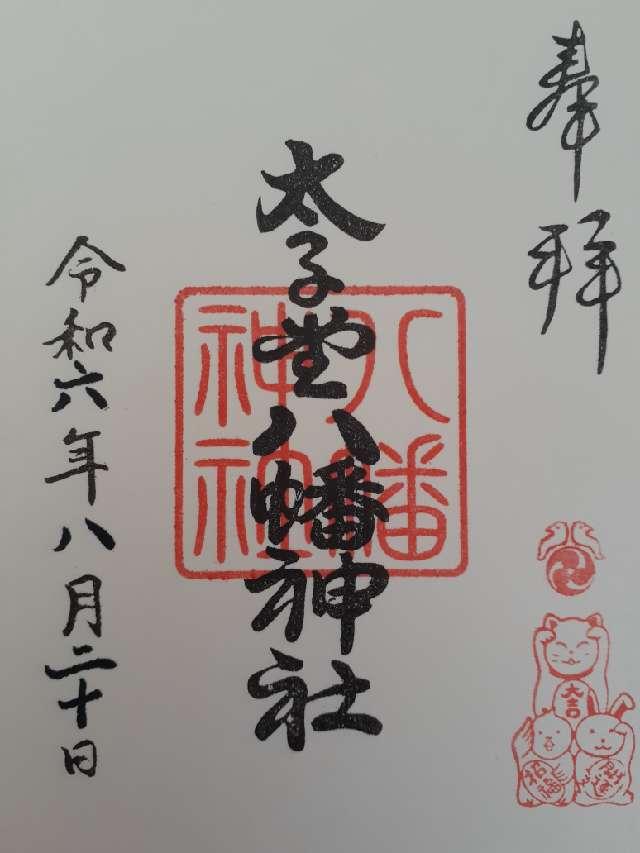 奉拝
太子堂八幡神社
八幡神社
令和六年八月二十日
大吉